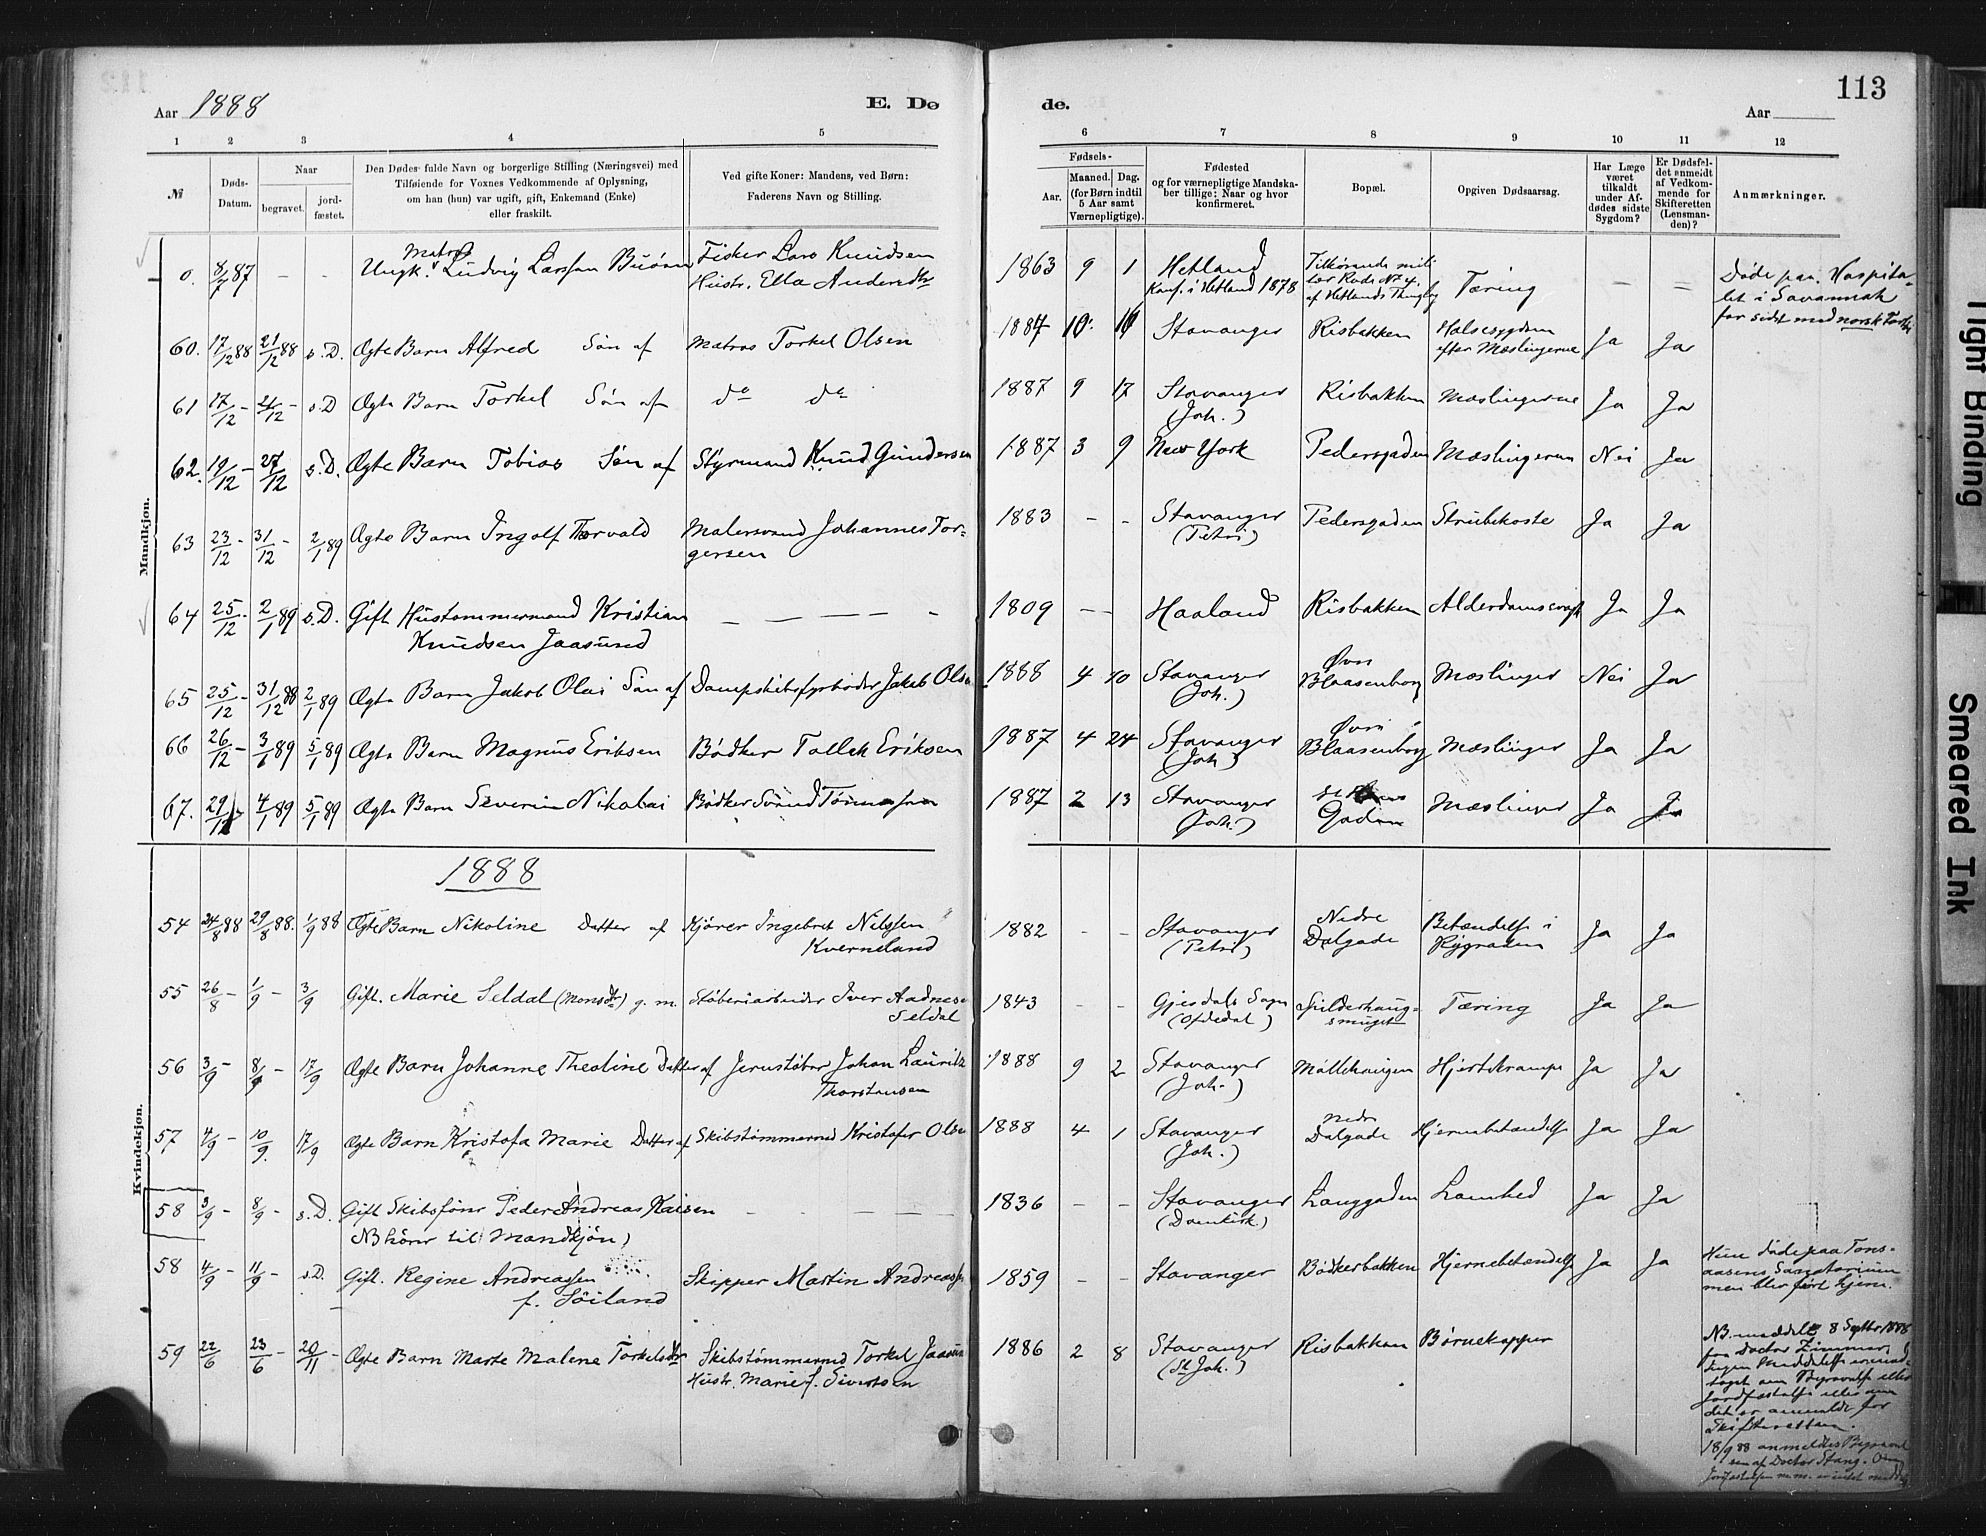 Aar 1888
E. Dø
de.
Aar
113
1 2 3 4 5 6 7 8 9 10 11 12
№
Døds-Datum.
Naar
begravet.
jord-fæstet.
Den Dødes fulde Navn og borgerlige Stilling (Næringsvei) med
Tilføiende for Voxnes Vedkommende af Oplysning,
om han (hun) var ugift, gift, Enkemand (Enke)
eller fraskilt.
Ved gifte Koner: Mandens, ved Børn:
Faderens Navn og Stilling.
Fødsels-
Aar.
Maaned. Dag.
(for Børn indtil
5 Aar samt
Værnepligtige).
Fødested
og for værnepligtige Mandska-
ber tillige: Naar og hvor
konfirmeret.
Bopæl.
Opgiven Dødsaarsag.
Har Læge
været
tilkaldt
under Af-
dødes sidste
Sygdom?
Er Dødsfal-
det anmeldt
af Vedkom-
mende for
Skifteretten
(Lensman-
den)?
Anmærkninger.
Mandkjøn.
0. 8/7 87 - - Ungk. Matros Ludvig Larsen Buøen Fisker Lars Knudsen 1863 9 1 Hetland Tæring - - Døde paa Hospita-
Hustr. Ella Andersdtr Konf. i Hetland 1878 af Hetlands Thinglag let i Savannah
for sidst med norsk
60. 17/12 88 21/12 88 s.D. Ægte Barn Alfred Søn af Matros Torkel Olsen 1884 10 Stavanger Risbakken Halsesygdom Ja Ja
efter Mæslingerne
61 17/12 - 21/12 - s.D Ægte Barn Torkel Søn af do do 1887 9 17 Stavanger Risbakken Mæslingerne Ja Ja
(Joh.)
62. 19/12 - 27/12 - s.D. Ægte Barn Tobias Søn af Styrmand Knud Gundersen 1887 3 9 New York Pedersgaden Mæslingerne Nei Ja
63 23/12 - 31/12 - 2/1 89 Ægte Barn Ingolf Thorvald Malersvend Johannes Tor- 1883 - - Stavanger Pedersgaden Strubehoste Ja Ja
gersen (Petri)
64 25/12 - 2/1 89 s.D. Gift Hustømmermand Kristian - - - - - 1809 - - Haaland Risbakken Alderdomssvagh Ja Ja
Knudsen Jaasund
65 25/12 - 31/12 88 2/1 89 Ægte Barn Jakob Olai Søn af Dampskibsfyrbøder Jakob Olsen 1888 4 10 Stavanger Øvre Blaasenborg Mæslinger Nei Ja
(Joh.)
66 26/12 - 3/1 89 5/1 89 Ægte Barn Magnus Eriksen Bødker Tollak Eriksen 1887 4 24 Stavanger Øvre Blaasenborg Mæslinger Ja Ja
(Joh)
67. 29/12 4/1 89 5/1 89 Ægte Barn Severin Nikolai Bødker Svend Tønnesen 1887 2 13 Stavanger Gaden Mæslinger Ja Ja
(Joh.)
Kvindekjøn.
1888
54 24/8 88 29/8 88. 1/9 88 Ægte Barn Nikoline Datter af Kjører Ingebret Nilsen 1882 - - Stavanger Nedre Betændelse i Ja Ja
Kverneland (Petri) Dalgade Rygraden
55 26/8 - 1/9 - 3/9 Gift. Marie Seldal (Monsdtr) g. m. Støberiarbeider Iver Aadnesen 1843 - - Gjesdals Sogn Spilderhaug- Tæring Ja Ja
Seldal smuget
56 3/9 - 8/9 - 17/9 Ægte Barn Johanne Theoline Datter af Jernstøber Johan Lauritz 1888 9 2 Stavanger Møllehaugen Hjertekrampe Ja Ja
Thorstensen (Joh.)
57 4/9 - 10/9. 17/9 Ægte Barn Kristofa Marie Datter af Skibstømmermd Kristofer Olsen 1888 4 1 Stavanger Nedre Hjernebetændelse Ja Ja
(Joh.) Dalgade
58 3/9 - 8/9 - s.D. Gift Skibsfører Peder Andreas Kaisen - - - - 1836 - - Stavanger Langgaden Lamhed Ja Ja
NB hører til Mandkjøn) (Domkirk.)
58 4/9 - 11/9 - s.D. Gift. Regine Andreassen Skipper Martin Andreassen 1859 - - Stavanger Bødkerbakken Hjernebetændelse Ja Ja Hun døde paa Tons-
f. Søiland aasens Sanatorium
men blev ført hjem.
59 22/6 - 23/6 - 20/11 - Ægte Barn Marte Malene Torkelsdtr Skibstømmermd Torkel Jaasund 1886 2 8 Stavanger Risbakken Børnekopper NB. meddelt 8 Septbr 1888
Hustr. Marie f. Sivertsen (St Joh.) fra Doctor Zimmer,
Ingen Meddelelse er mod-
taget om Begravelse eller
Jordfæstelse eller om
det er anmeldt for
Skifteretten.
18/9 88 anmeldtes
af Doctor Stang.
Tight Binding
Smeared Ink